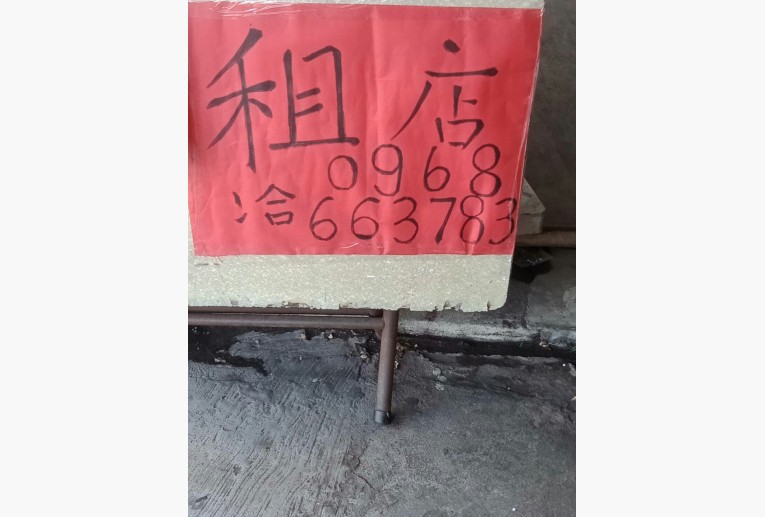 租店
0968
洽 663783